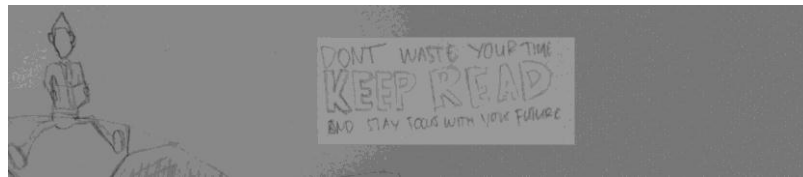 DONT WASTE YOUR TIME
KEEP READ
AND STAY FOCUS WITH YOUR FUTURE